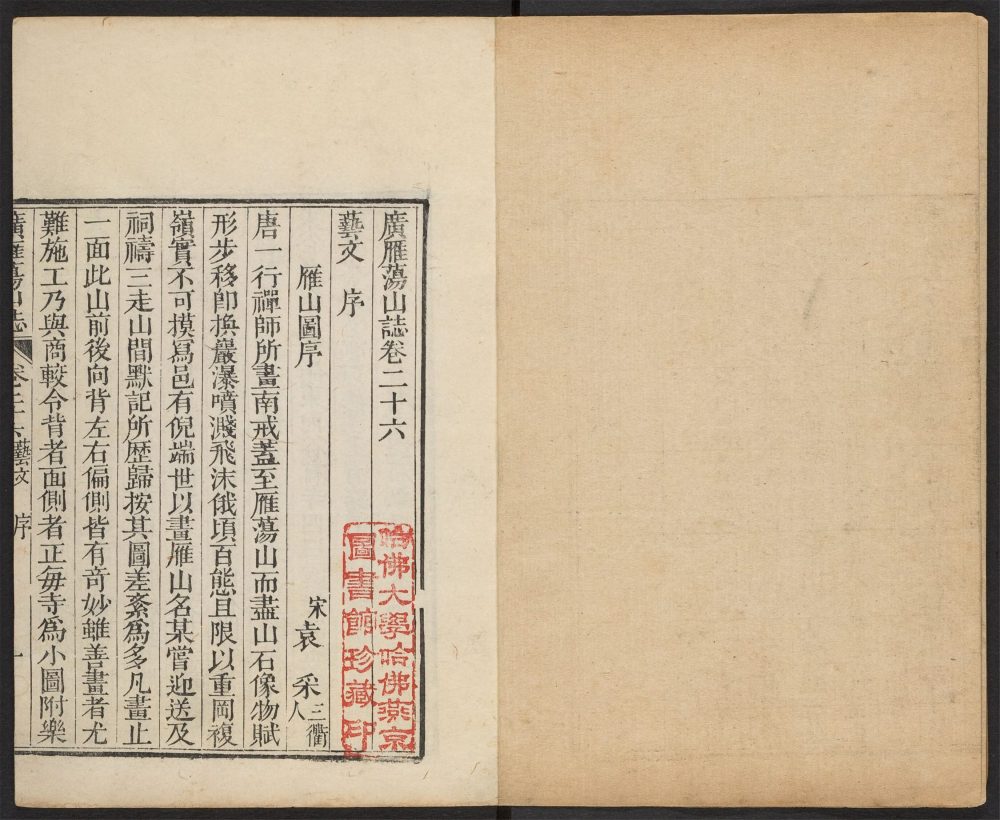 廣雁蕩山誌卷二十六
藝文 序
雁山圖序 宋袁采三衢人
唐一行禪師所畫南戒蓋至雁蕩山而盡山石像物賦
形步移卽換巖瀑噴濺飛沫俄頃百態且限以重岡複
嶺實不可摸寫邑有倪端世以畫雁山名某嘗迎送及
祠禱三走山間默記所歷歸按其圖差紊爲多凡畫止
一面此山前後向背左右偏側皆有奇妙雖善畫者尤
難施工乃與商較令背者面側者正每寺爲小圖附樂
廣雁蕩山誌 卷二十六 藝文 序 一
哈佛大學哈佛燕京
圖書館珍藏印